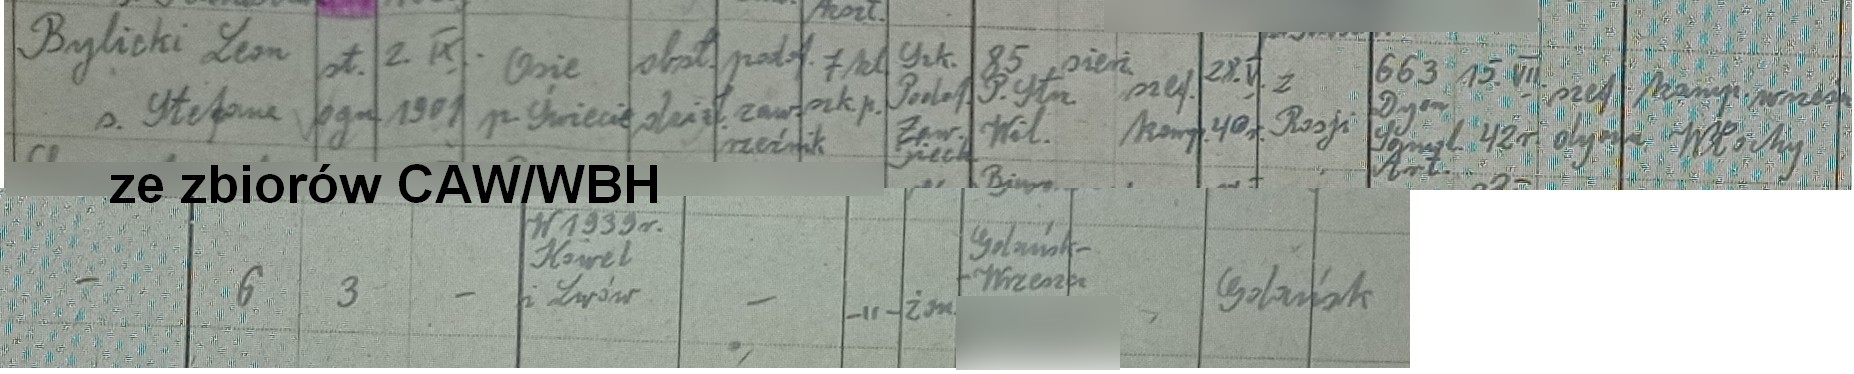 Bylicki Leon
s. Stefana
st.
ogn.
2. IX.
1901
Osie
p. Świecie
obsł.
dział.
podof.
zaw.
rzeźnik
7 kl.
szk. p.
Szk.
Podof.
Zaw.
Piech.
85
P. Strz.
Wil.
sierż.
szef.
komp.
28. V.
40 r.
z
Rosji
663
Dyon
Art.
15. VII.
42 r.
szef komp. wrzesień
Włochy
ze zbiorów CAW/WBH
Biuro
-
6
3
-
W 1939 r.
Kowel
i Lwów
-
-"-
żon.
Gdańsk-
-Wrzeszcz
Gdańsk